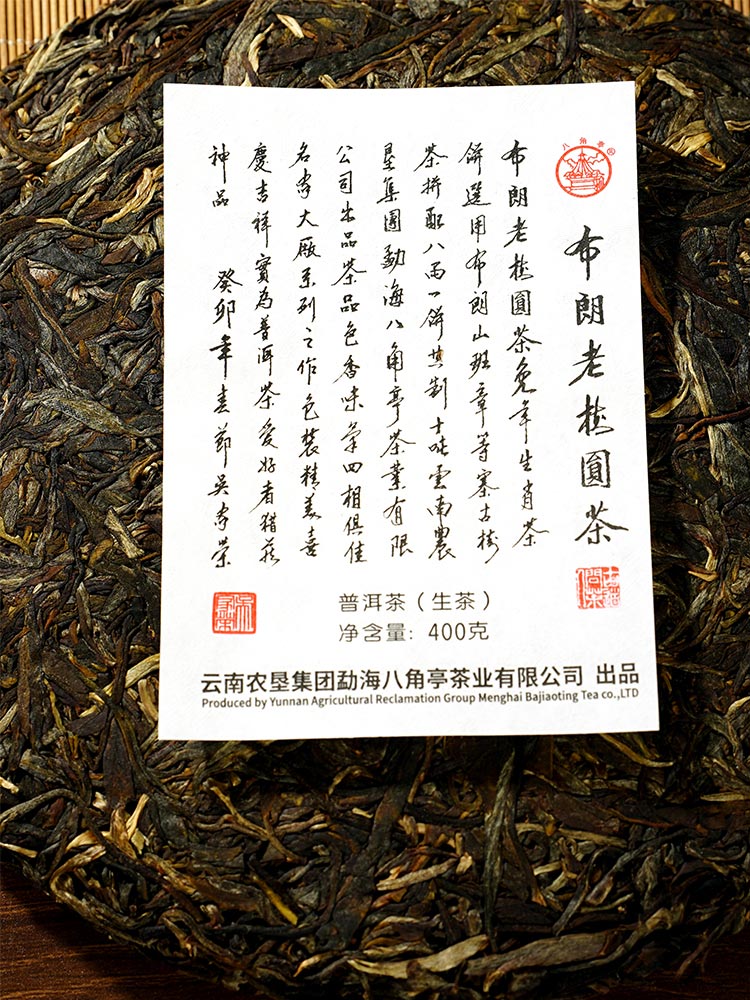 八角亭®
布朗老樹圓茶
布朗老樹圓茶兔年生肖茶
餅選用布朗山班章等寨古樹
茶拼配八両一餅共制十吨雲南農
墾集團勐海八角亭茶業有限
公司出品茶品色香味氣四相俱佳
名家大廠系列之作包裝精美喜
慶吉祥實為普洱茶愛好者猎藏
神品 癸卯年春節吳家榮
普洱茶（生茶）
净含量：400克
云南农垦集团勐海八角亭茶业有限公司 出品
Produced by Yunnan Agricultural Reclamation Group Menghai Bajiaoting Tea co.,LTD